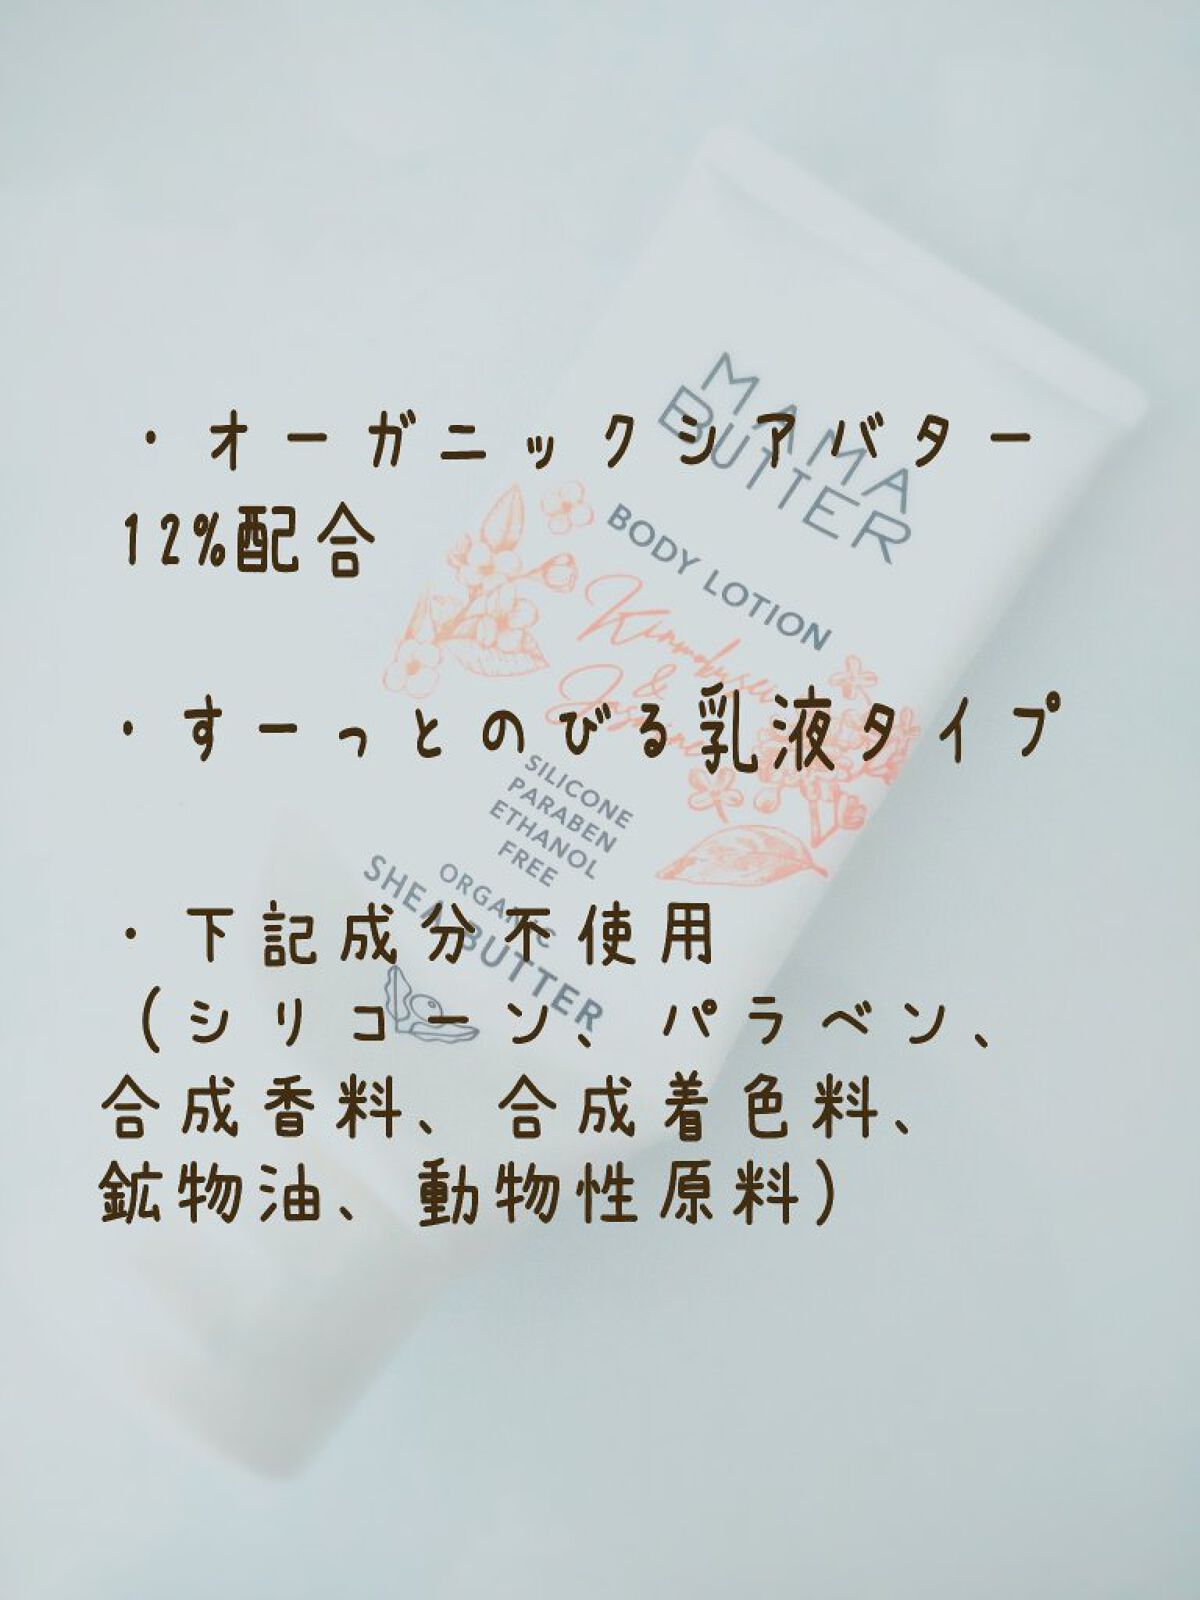 ・オーガニックシアバター
12%配合
・すーっとのびる乳液タイプ
・下記成分不使用
(シリコーン、パラベン、
合成香料、合成着色料、
鉱物油、動物性原料)
MAMA
BUTTER
BODY LOTION
Kinmokusei
&
Jasmine
SILICONE
PARABEN
ETHANOL
FREE
ORGANIC
SHEA BUTTER